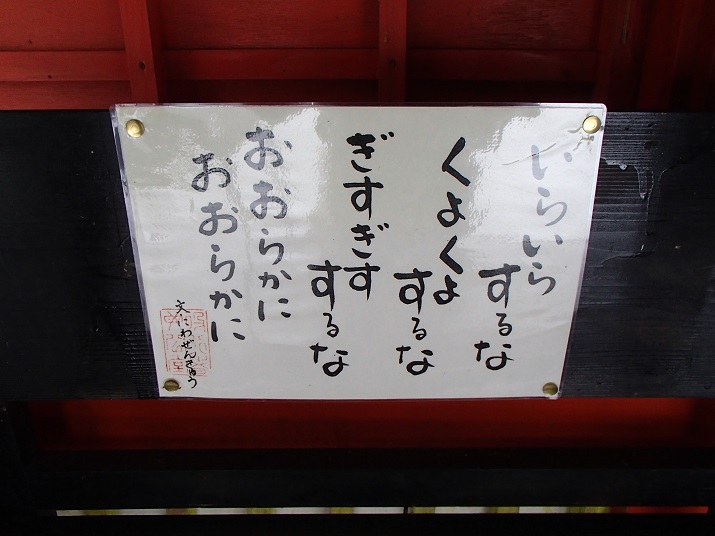 いらいら
するな
くよくよ
するな
ぎすぎす
するな
おおらかに
おおらかに
文にわぜんきゅう